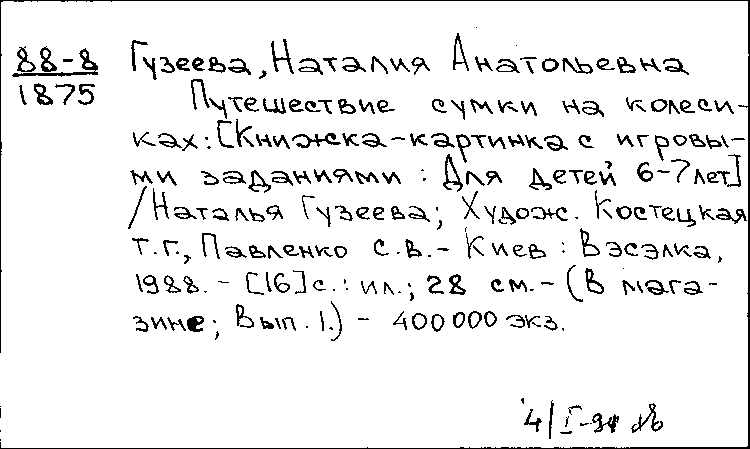 88-8 Гузеева, Наталия Анатольевна
1875
Путешествие сумки на колеси-
ках: [Книжка-картинка с игровы-
ми заданиями: Для детей 6-7 лет]
/Наталья Гузеева; Худож. Костецкая
Т.Г., Павленко С.В. - Киев: Вэсэлка,
1988. - [16] с.: ил.; 28 см. - (В мага-
зине; Вып. 1.) - 400 000 экз.
4/I-94